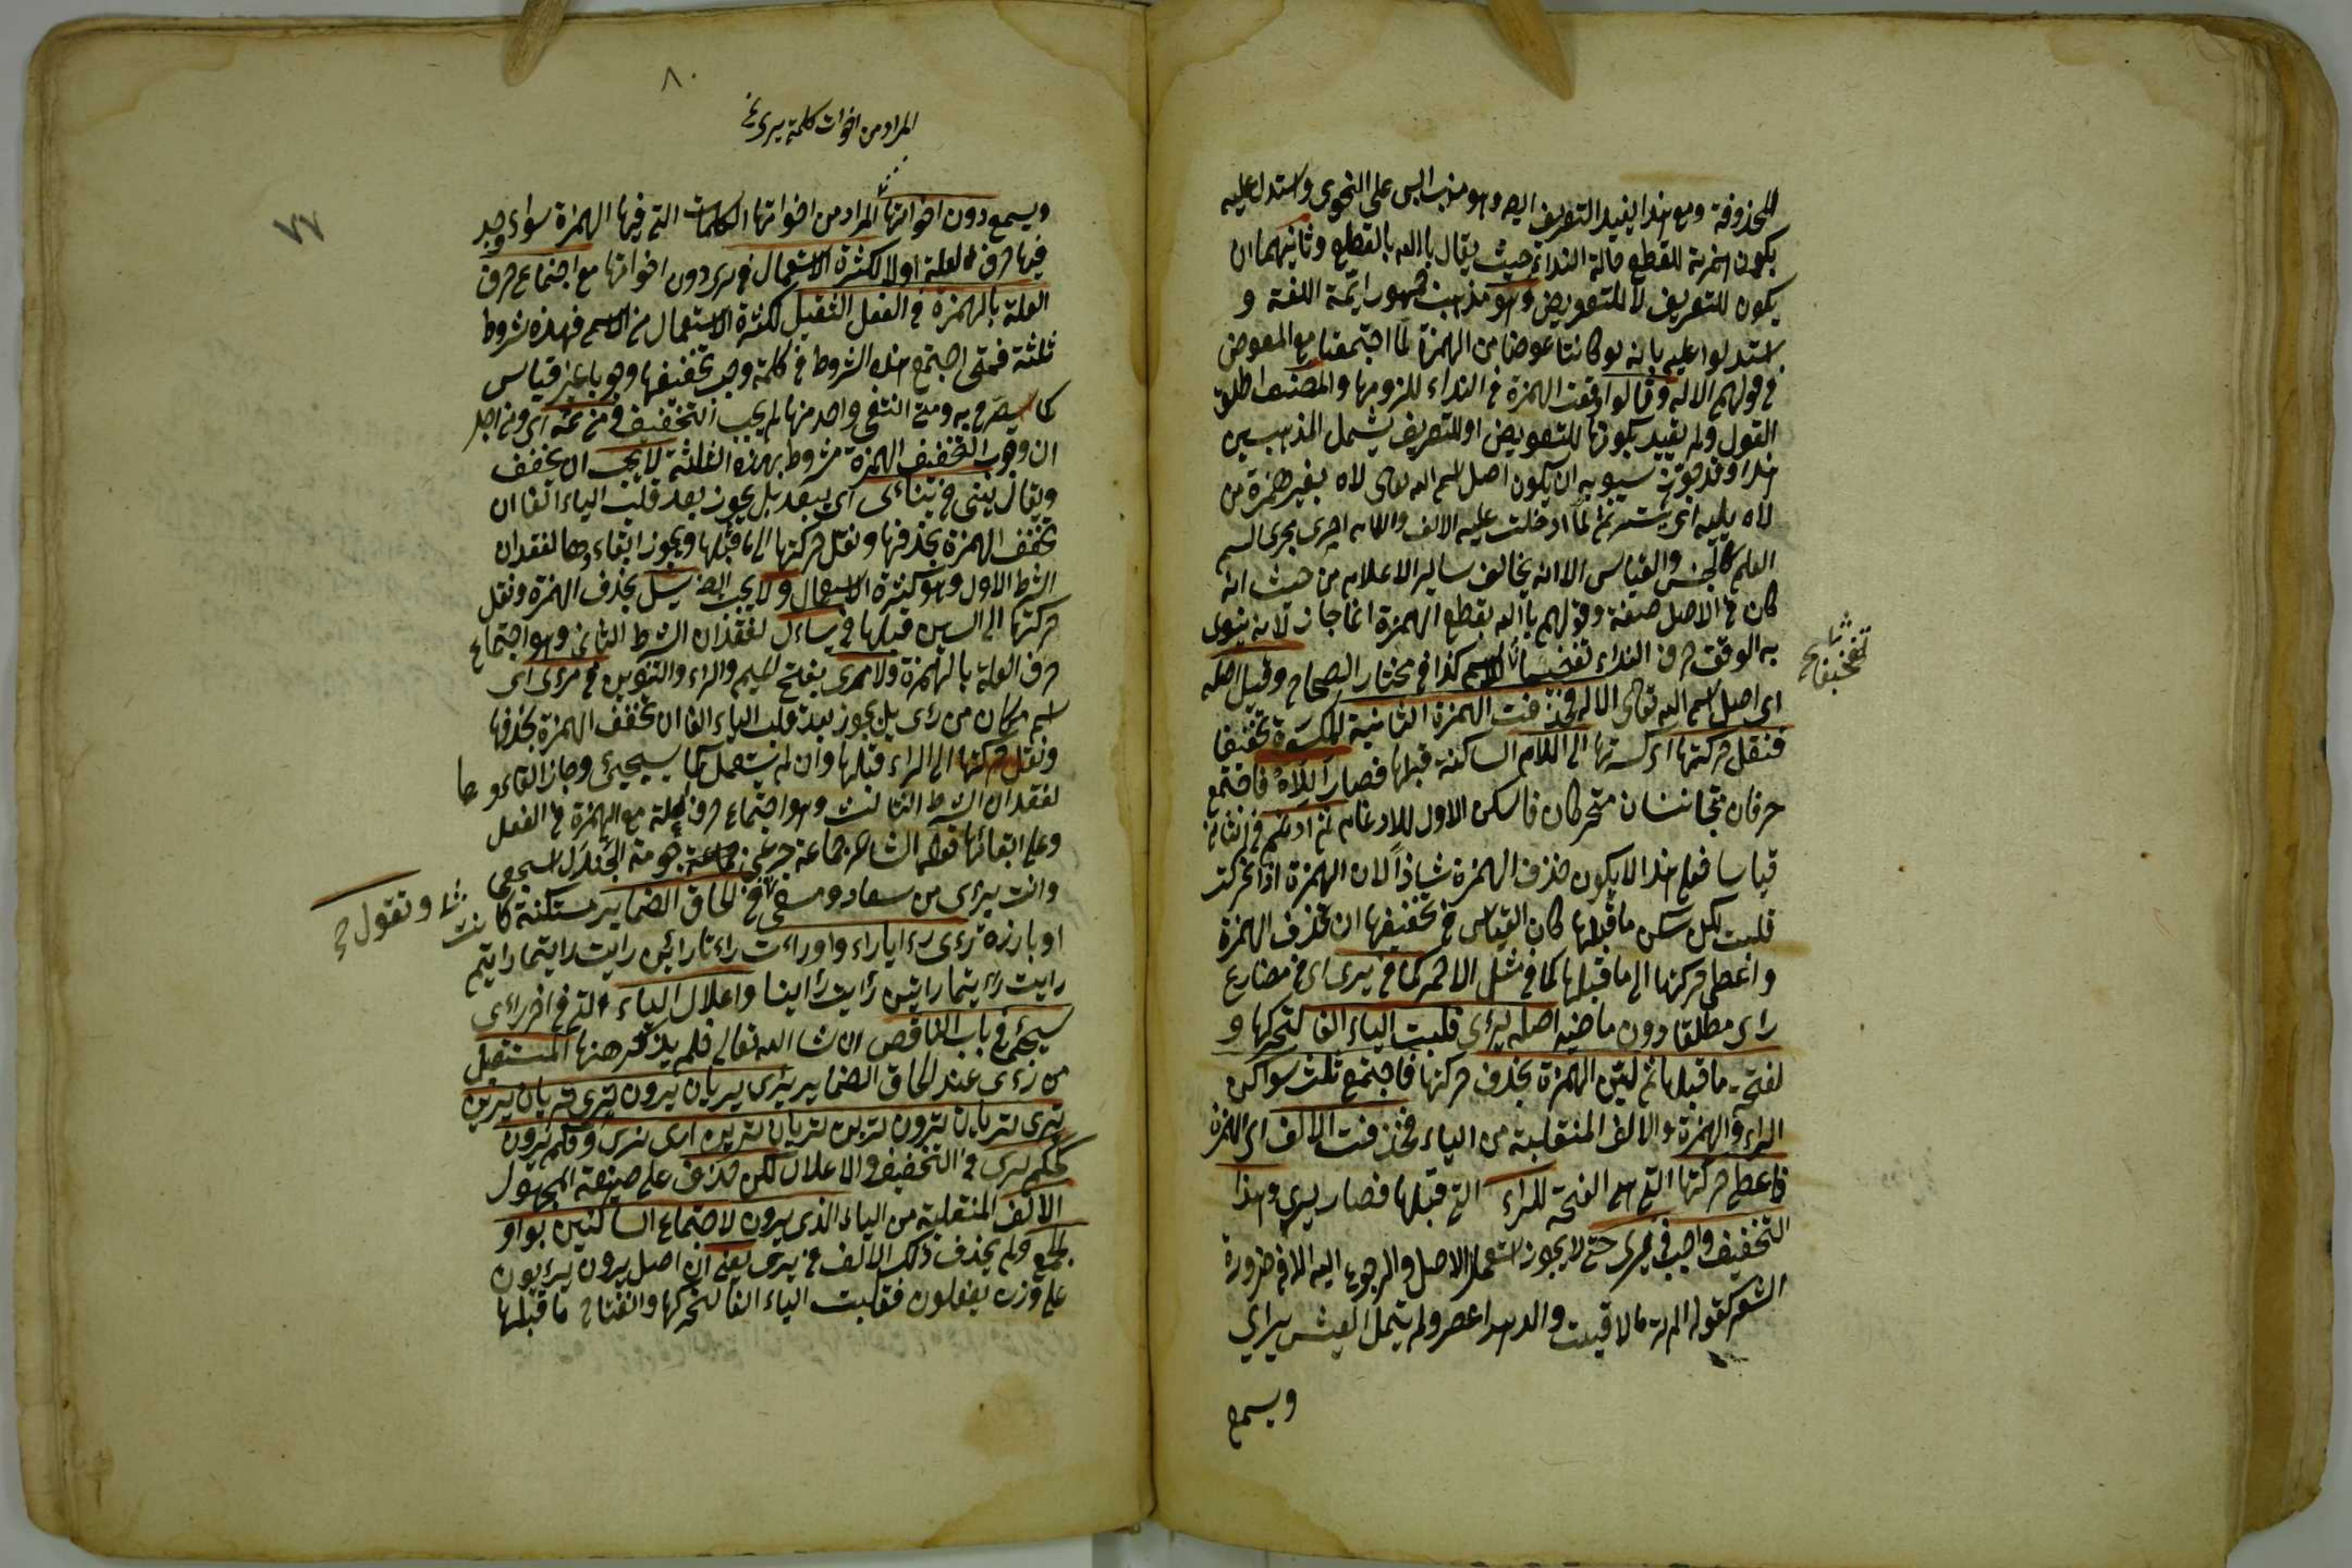 للمحذوفة ومع هذا يفيد التعريف اليه وهو مذهب ابى على النحوى واستدل عليه
بكون همزته للقطع حالة النداء حيث يقال يا الله بالقطع وثانيهما ان
يكون للتعريف لا للتعويض وهو مذهب جمهور ائمة اللغة و
استدلوا عليه بانه لو كانتا عوضا من الهمزة لما اجتمعتا مع المعوض
فى قولهم الاله وقالوا وقعت الهمزة فى النداء للزومها والمصنف اطلق
القول ولم يقيد بكونها للتعويض او للتعريف يشمل المذهبين
هذا وقد جوز سيبويه ان يكون اصل اسم الله تعالى لاه بغير همزة من
لاه يليه اى يستر ثم لما ادخلت عليه الالف واللام اجرى مجرى اسم
العلم كالجنس والقياس الا انه يخالف سائر الاعلام من حيث انه
كان فى الاصل صفة وقولهم يا الله بقطع الهمزة انما جاز لانه ينوى
به الوقف حرف النداء تفخيما للاسم كذا فى مختار الصحاح وقيل اصله
تخفيفا
اى اصل اسم الله تعالى الاله فحذفت الهمزة الثانية المكسورة تخفيفا
فنقل حركتها اى كسرتها الى اللام الساكنة قبلها فصار اللاه فاجتمع
حرفان متجانسان متحركان فاسكن الاول للادغام ثم ادغم فى الثانى
قياسا فعلى هذا لا يكون حذف الهمزة شاذا لان الهمزة اذا تحركت
قلبت لكن سكن ما قبلها كان القياس فى تخفيفها ان تحذف الهمزة
واعطى حركتها الى ما قبلها كما فى مثل الاحمر كما فى يرى اى فى مضارع
راى مطلقا دون ماضيه اصله يرأى قلبت الياء الفا لتحركها و
لفتحة ما قبلها ثم لين الهمزة بحذف حركتها فاجتمع ثلث سواكن
الراء والهمزة والالف المنقلبة من الياء فحذفت الالف اى الهمزة
فاعطى حركتها التى هى الفتحة للراء التى قبلها فصار يرى وهذا
التخفيف واجب فى يرى حتى لا يجوز استعمال الاصل والرجوع اليه الا فى ضرورة
الشعر كقوله الم تر ما لاقيت والدهر اعصر ولم يتمل العيش يراى
ويسمع
٨٠
المراد من اخوات كلمة يرى
٧٧
ويسمع دون اخواتها المراد من اخواتها الكلمات التى فيها الهمزة سواء وجد
فيها حرف العلة اولا لكثرة الاستعمال فى يرى دون اخواتها مع اجتماع حرف
العلة بالهمزة فى الفعل الثقيل لكثرة الاستعمال من الاسم فهذه شروط
ثلثة فمتى اجتمع هذه الشروط فى كلمة وجب تخفيفها وجوبا غير قياس
كما سيصرح به ومتى انتفى واحد منها لم يجب التخفيف فمن ثمه اى ومن اجل
ان وجوب التخفيف الهمزة مشروط بهذه الثلثة لا يجب ان يخفف
ويقال ينى فى يناءى اى يبعد بل يجوز بعد قلب الياء الفا ان
تخفف الهمزة بحذفها ونقل حركتها الى ما قبلها ويجوز ابقاءوها لفقدان
الشرط الاول وهو كثرة الاستعمال ولا يجب ايضا يسل بحذف الهمزة ونقل
حركتها الى السين قبلها فى يساءل لفقدان الشرط الثانى وهو اجتماع
حرف العلة بالهمزة ولا مرى بفتح الميم والراء والتنوين فى مرءى اى
اسم مكان من رءى بل يجوز بعد قلب الياء الفا ان تخفف الهمزة بحذفها
ونقل حركتها الى الراء قبلها وان لم يستعمل كما سيجيئ وجاز القاءوها
لفقدان الشرط الثالث وهو اجتماع حرف العلة مع الهمزة فى الفعل
وعلى ابقائها قول الشاعر
وانت يرءى من سعاد ومسقى فى الحاق الضماير مستكنة كانت
وتقول
او بارزة رءى رءايا راءوا وراءت راءتا رائين رايت رايتما رايتم
رايت رءيتما رايتن رأيت رأينا واعلال الياء التى فى اخر راى
سيجئ فى باب الناقص ان شاء الله تعالى فلم يذكر هنها المستقبل
من رءى عند الحاق الضماير يرى يريان يرون ترى تريان يرين
ترى تريان ترون ترين تريان ترين ارى نرى وحكم يرون
كحكم يرى فى التخفيف والاعلال لكن حذف على صيغة المجهول
الالف المنقلبة من الياء الذى يرون لاجتماع الساكنين بواو
الجمع ولم يحذف ذلك الالف فى يرى يعنى ان اصل يرون يرءيون
على وزن يفعلون فقلبت الياء الفا لتحركها وانفتاح ما قبلها